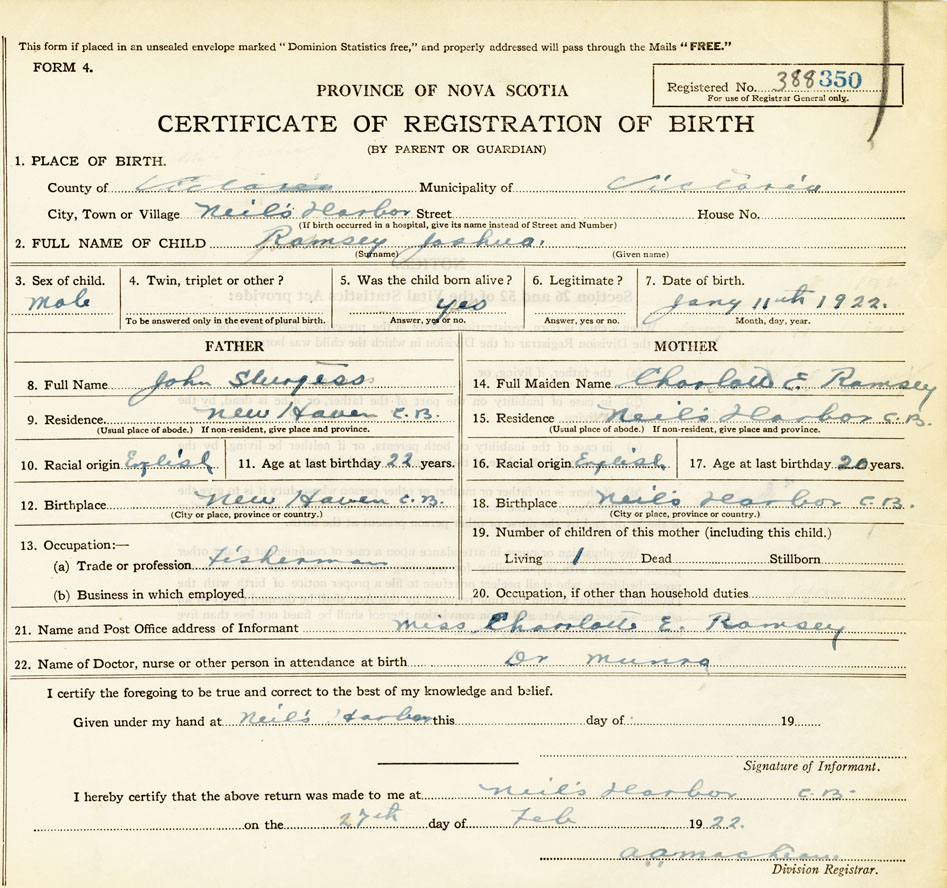 This form if placed in an unsealed envelope marked "Dominion Statistics free," and properly addressed will pass through the Mails "FREE."
FORM 4.
Registered No. 388 350
For use of Registrar General only.
PROVINCE OF NOVA SCOTIA
CERTIFICATE OF REGISTRATION OF BIRTH
(BY PARENT OR GUARDIAN)
1. PLACE OF BIRTH.
County of Victoria Municipality of Victoria
City, Town or Village Neil's Harbor Street House No.
(If birth occurred in a hospital, give its name instead of Street and Number)
2. FULL NAME OF CHILD Ramsey Joshua.
(Surname) (Given name)
3. Sex of child. 4. Twin, triplet or other? 5. Was the child born alive? 6. Legitimate? 7. Date of birth.
Male yes Jany 11th 1922.
To be answered only in the event of plural birth. Answer, yes or no. Answer, yes or no. Month, day, year.
FATHER MOTHER
8. Full Name John Sturgess 14. Full Maiden Name Charlotte E. Ramsey
9. Residence New Haven C.B. 15. Residence Neil's Harbor C.B.
(Usual place of abode.) If non-resident, give place and province. (Usual place of abode.) If non-resident, give place and province.
10. Racial origin English 11. Age at last birthday 22 years. 16. Racial origin English 17. Age at last birthday 20 years.
12. Birthplace New Haven C.B. 18. Birthplace Neil's Harbor C.B.
(City or place, province or country.) (City or place, province or country.)
13. Occupation:— 19. Number of children of this mother (including this child.)
(a) Trade or profession Fisherman Living 1 Dead Stillborn
(b) Business in which employed 20. Occupation, if other than household duties
21. Name and Post Office address of Informant Miss Charlotte E. Ramsey
22. Name of Doctor, nurse or other person in attendance at birth Dr Munro
I certify the foregoing to be true and correct to the best of my knowledge and belief.
Given under my hand at Neil's Harbor this day of 19
Signature of Informant.
I hereby certify that the above return was made to me at Neil's Harbor C.B.
on the 27th day of Feb 1922.
Division Registrar.